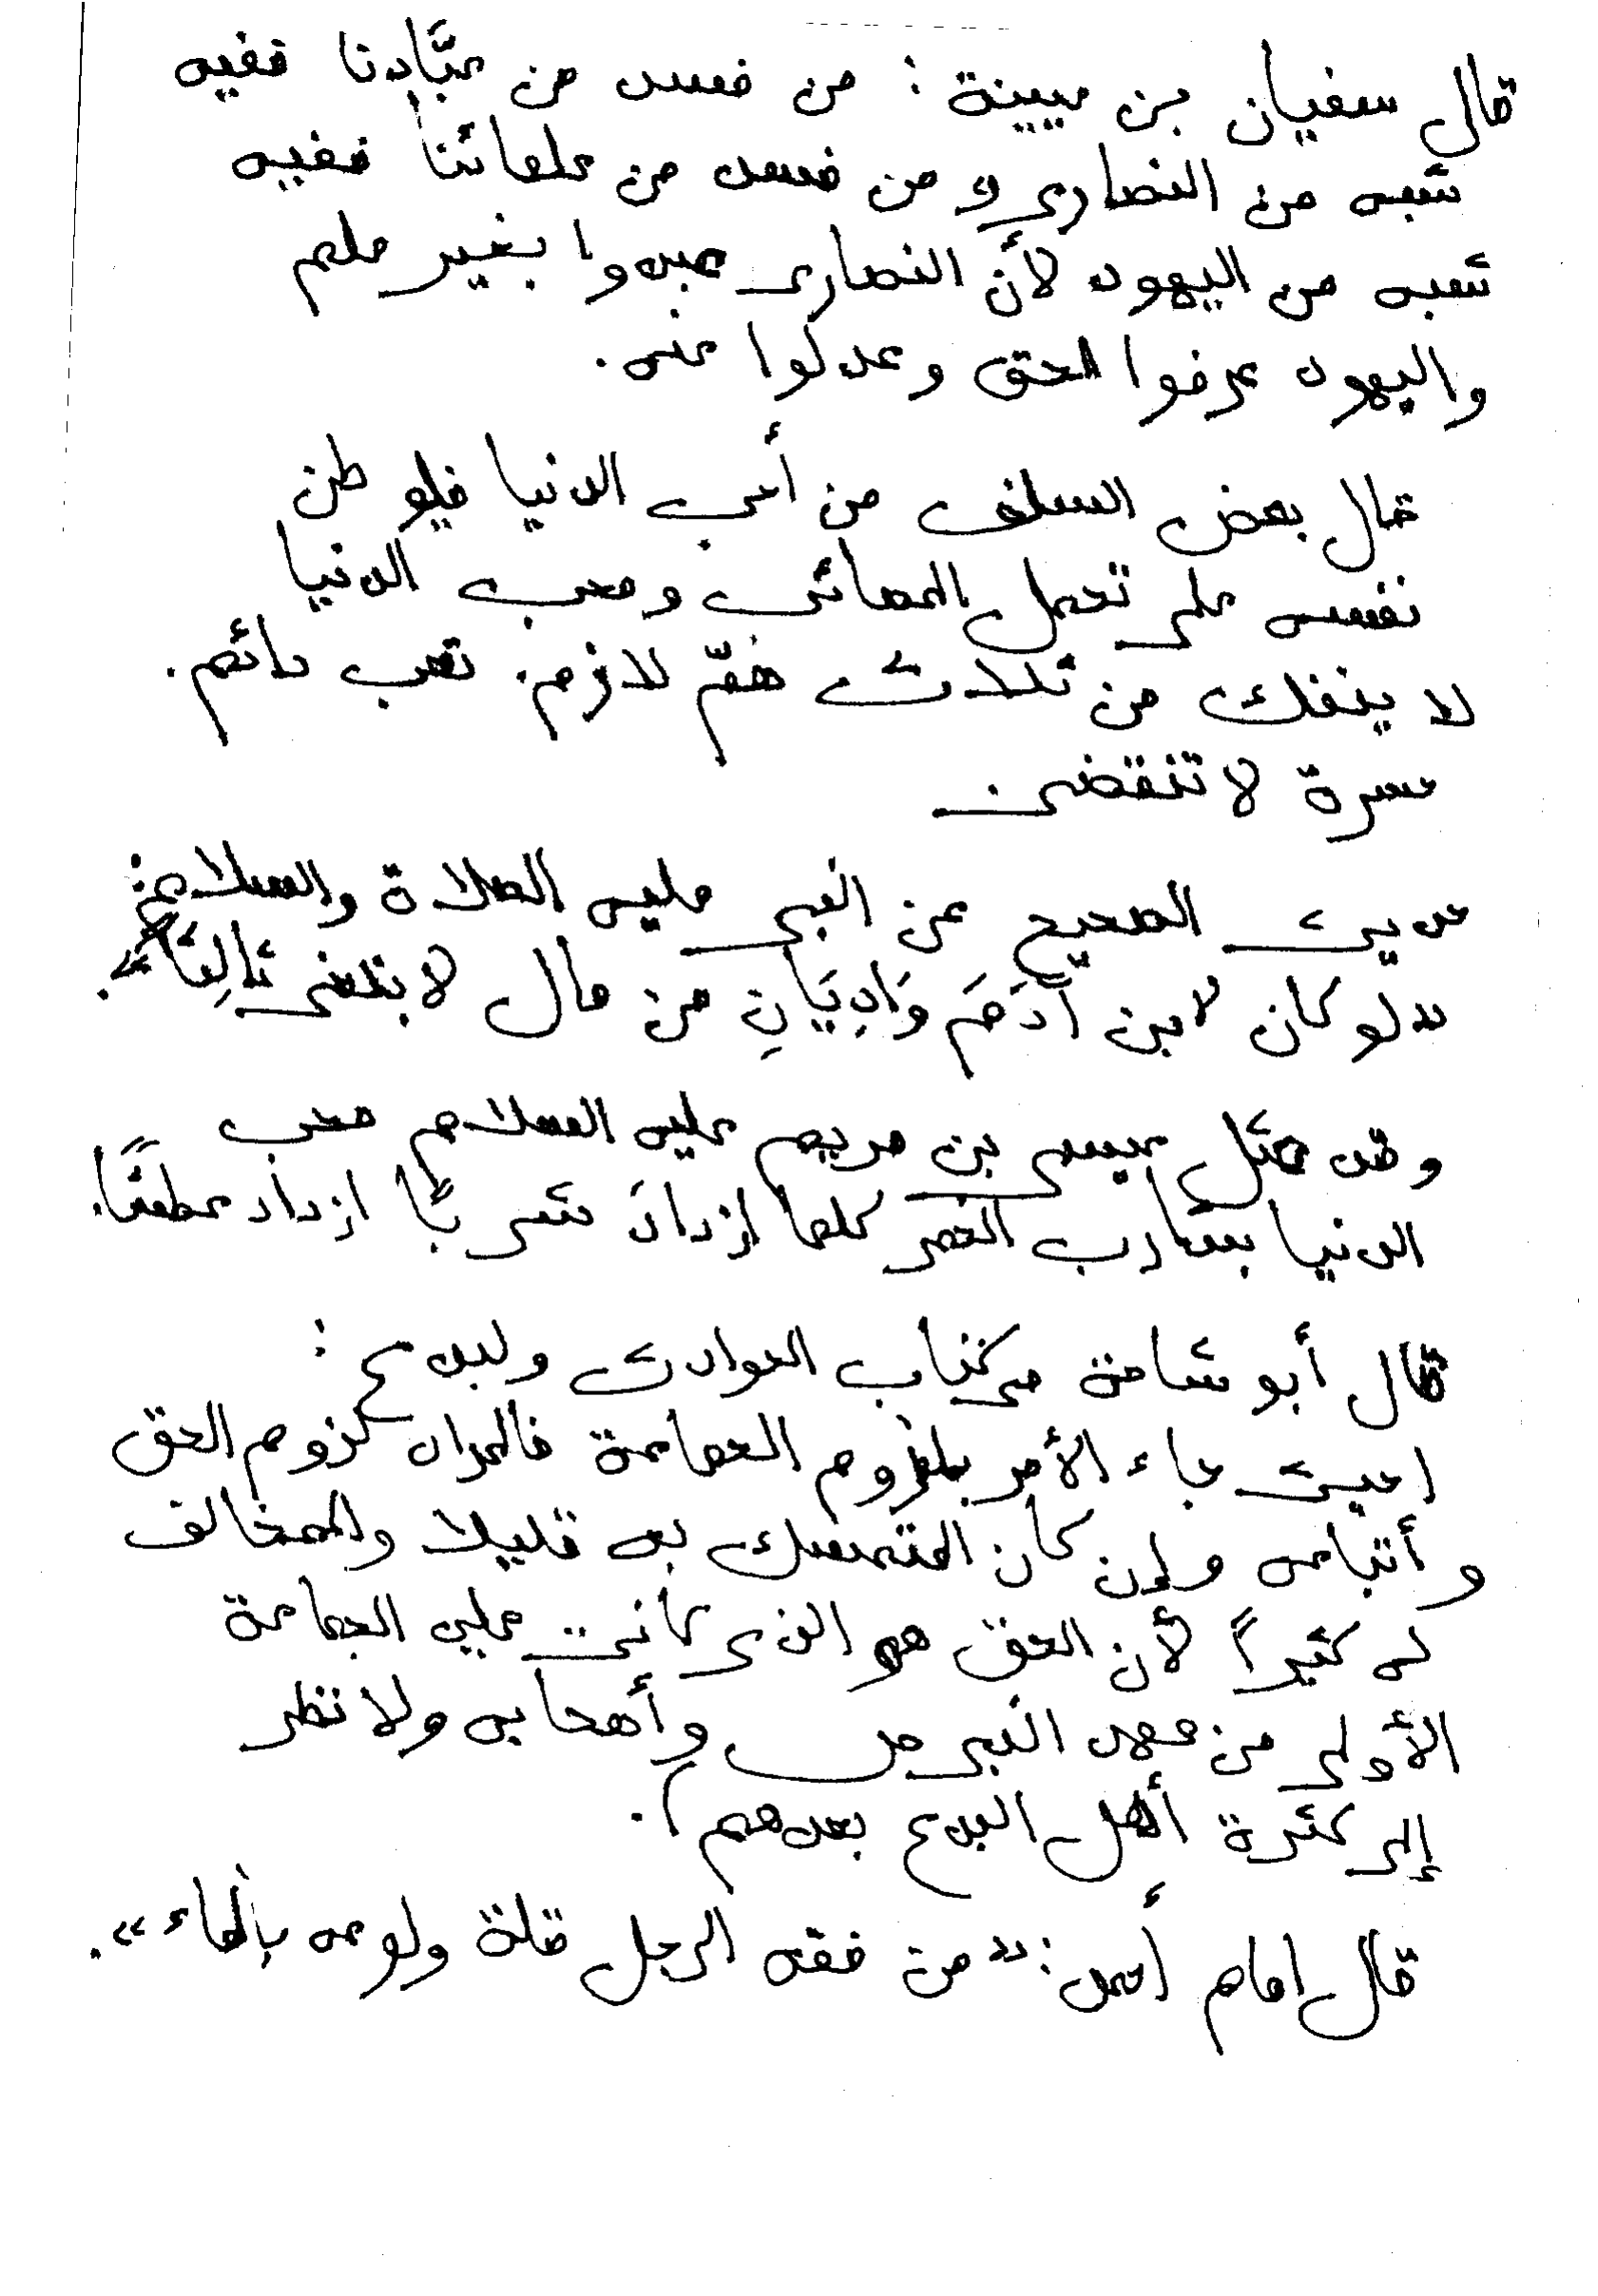 قال سفيان بن عيينة: من فسد من عبَّادنا ففيه
شبه من النصارى و من فسد من علمائنا ففيه
شبه من اليهود لأن النصارى عبدوا بغير علم
واليهود عرفوا الحق وعدلوا عنه.
قال بعض السلف من أحب الدنيا فليوطن
نفسه على تحمل المصائب ومحب الدنيا
لا ينفك من ثلاث همّ لازم. تعب دائم.
حسرة لا تنقضى
حديث الصحيح عن النبى عليه الصلاة والسلام:
"لو كان لابن آدَمَ وَادِيَانِ من مال لابتغى ثَالِثًا".
وقد مثل عيسى بن مريم عليه السلام محب
الدنيا بشارب الخمر كلما ازدادَ شربًا ازداد عطشًا.
قال أبو شامة فى كتاب الحوادث ولبدع:
(حيث جاء الأمر بلزوم الجماعة فالمراد لزوم الحق
وأتباعه وإن كان المتمسك به قليلا والمخالف
له كثيراً لأن الحق هو الذى كانت عليه الجماعة
الأولى من عهد النبى ص وأصحابه ولا نظر
إلى كثرة أهل البدع بعدهم).
قال امام أحمد: "من فقه الرجل قلة ولوعه بالماء".